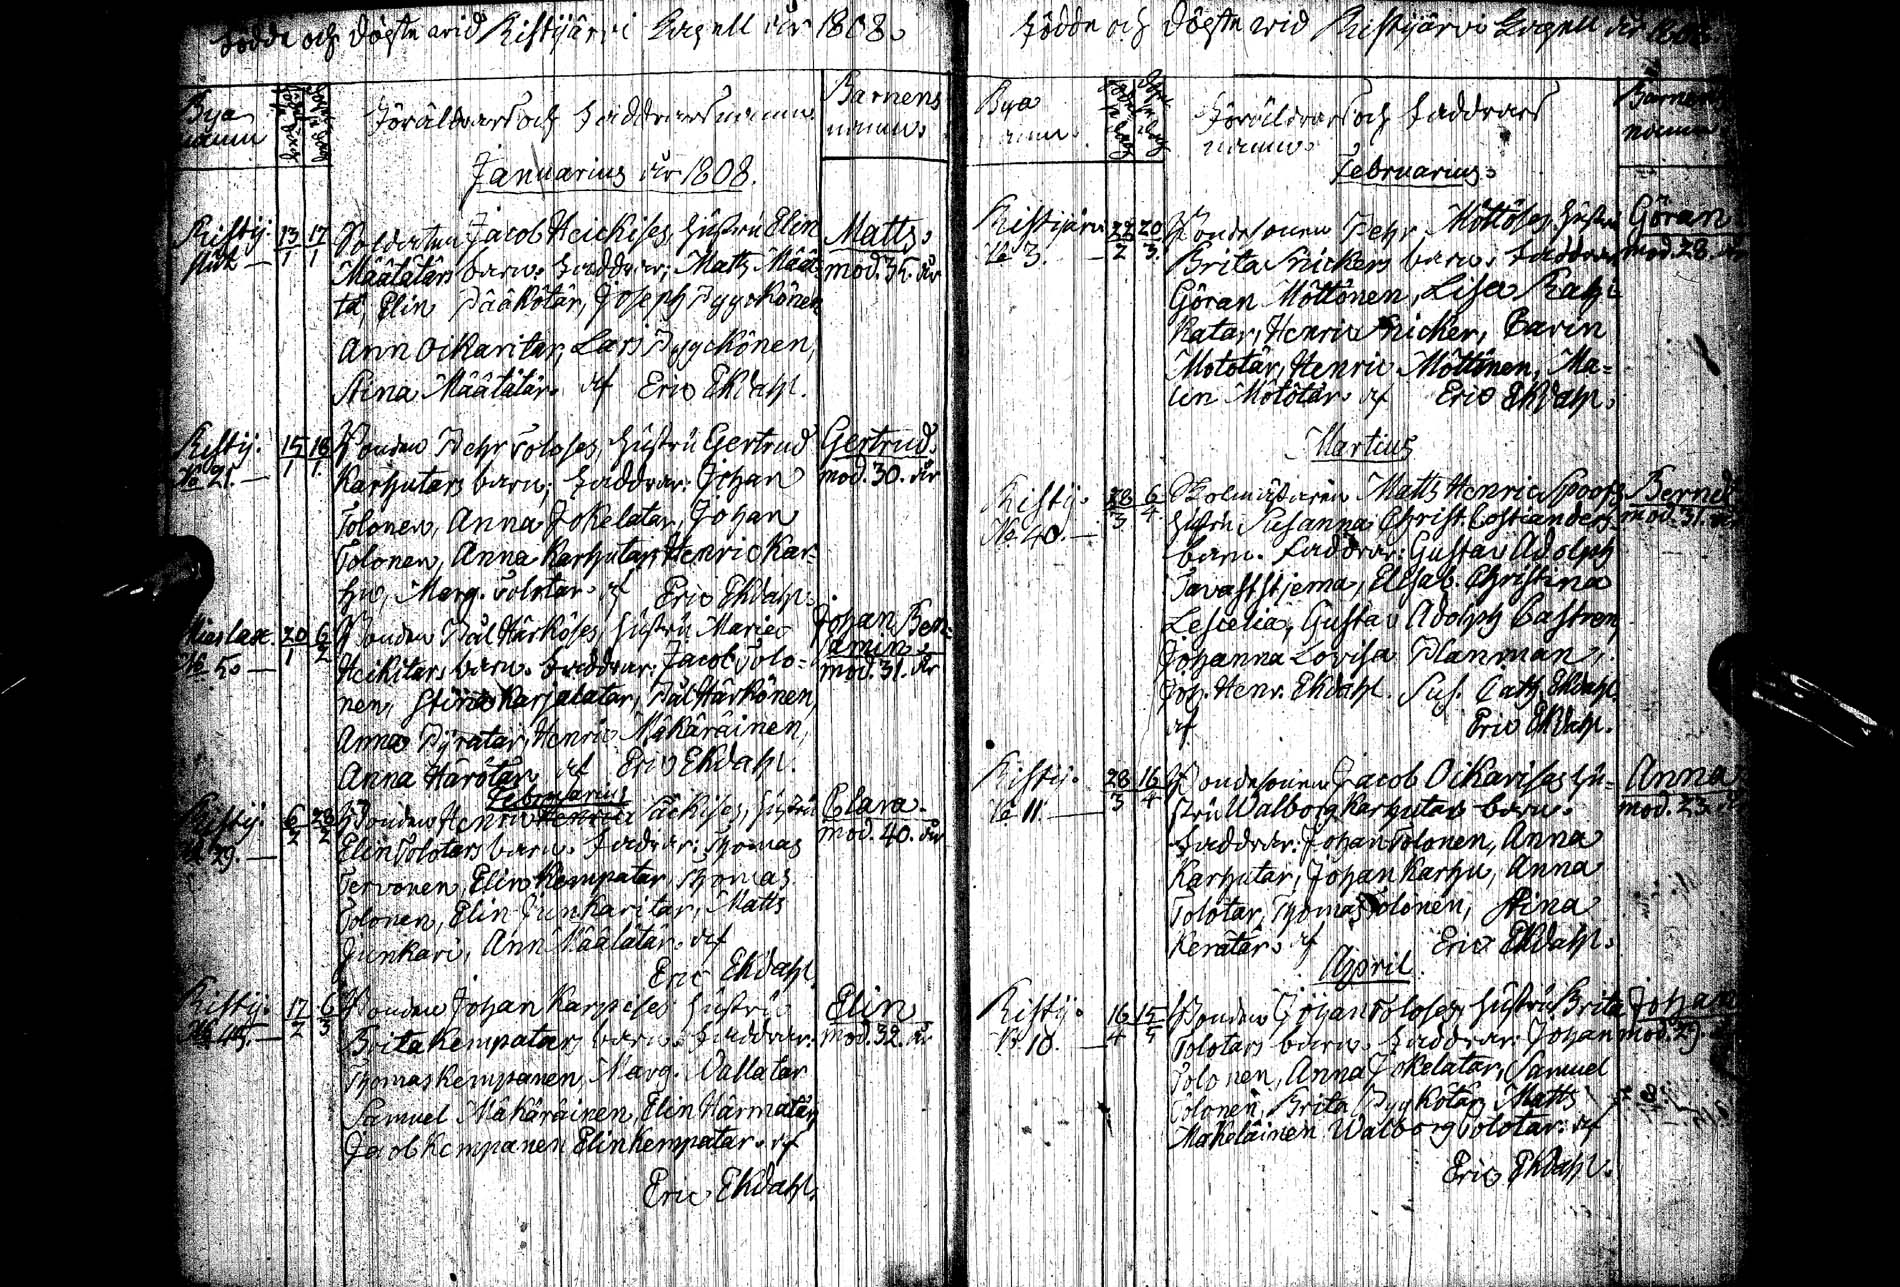 Födde och döpte wid Kistijärvi Capell år 1808.
Bya namn
Föräldrars och Faddrars namn
Barnens namn.
Januarius år 1808.
Kistij: 13/1 17/1 Soldaten Jacob Heickises hustru Elin Matts.
Määtätärs barn. Faddrar: Matts Määt- mod. 35. år
tä, Elin Pääkötär, Joseph Pyyckönen
Ann Oikaritar, Lars Pyyckönen,
Stina Määtätär. af Eric Ekdahl.
Kistij: 15/1 18/1 Bonden Pehr Toloses hustru Gertrud Gertrud.
No 21. Karhutars barn; Faddrar: Johan mod. 30. år
Tolonen, Anna Jokelatar, Johan
Tolonen, Anna Karhutar, Henric Kar-
hu, Marg. Tolotar. af Eric Ekdahl.
20/1 6/2 Bonden Pål Härköses hustru Maria Johan Ben-
No 5. Heikitars barn. Faddrar: Jacob Tolo- jamin.
nen, Stina Karjalatar, Pål Härkönen, mod. 31. år
Anna Pyratar, Henric Mäkäräinen,
Anna Härötar af Eric Ekdahl.
Februarius
Kistij: 6/2 28/2 Bonden Henric Säckises, hustru Clara.
No 29. Elin Tolotars barn. Fadrar: Thomas mod. 40. år
Tervonen, Elin Kempatar, Thomas
Tolonen, Elin Junkaritar, Matts
Junkari, Ann Määtätär. af
Eric Ekdahl.
Kistij: 17/2 6/3 Bonden Johan Karppises hustru Elin
No 45. Brita Kempatars barn. Faddrar: mod. 32. år
Thomas Kempanen, Marg. Vallatar
Samuel Mäkäräinen Elin Härmatär,
Jacob Kempanen Elin Kempatar. af
Eric Ekdahl.
Födde och döpte wid Kistijärvi Capell år 1808.
Bya namn.
Föräldrars och Faddrars namn.
Barnens namn.
Februarius.
Kistijärvi 22/2 20/3 Bondesonen Pehr Möttöses hustru Göran
No 3. Brita Snickers barn. Faddrar, mod. 28. år
Göran Möttönen, Lisa Rahi-
katar, Henric Snicker, Carin
Mototär, Henric Möttönen, Ma-
lin Mötötär. af Eric Ekdahl.
Martius
Kistij: 28/3 6/4 Skolmästaren Matts Henric Spoofs Bernd
No 40. hustru Susanna Christ. Costianders mod. 31. år
barn. Faddrar: Gustav Adolph
Tavaststjerna, Elisab. Christina
Lescelia, Gustav Adolph Castren,
Johanna Lovisa Planman,
Joh. Henr. Ekdahl. Sus. Cath. Ekdahl.
af Eric Ekdahl.
Kistij: 28/3 16/4 Bondesonen Jacob Oikarises hu- Anna
No 11. stru Walborg Karhutars barn. mod. 23.
Faddrar: Johan Tolonen, Anna
Karhutar, Johan Karhu, Anna
Tolotar, Thomas Tolonen, Stina
Kerätär. af Eric Ekdahl.
April
Kistij: 16/4 15/5 Bonden Johan Toloses hustru Brita Johan
No 10. Tolotars barn. Faddrar: Johan mod. 29
Tolonen, Anna Jokelatar, Samuel
Tolonen, Brita Pyykötär, Matts
Makeläinen Walborg Tolotar. af
Eric Ekdahl.